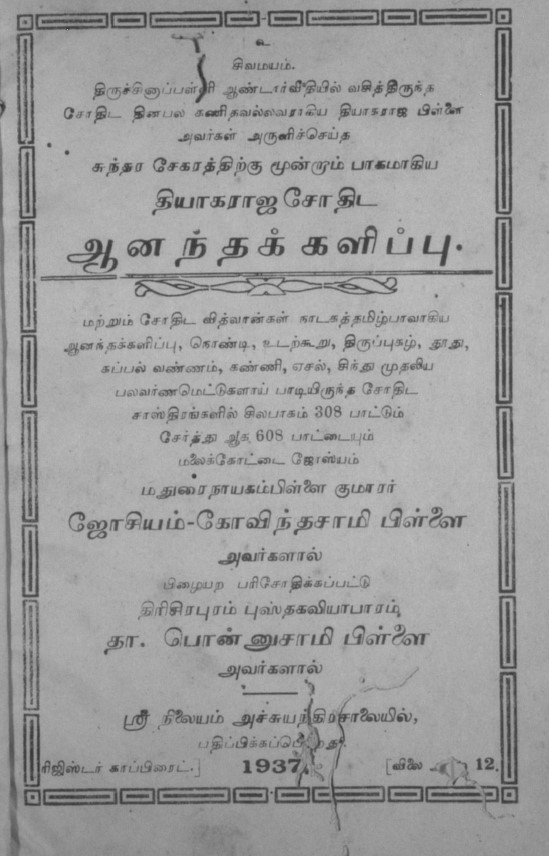 உ
சிவமயம்.
திருச்சினாப்பள்ளி ஆண்டார்வீதியில் வசித்திருந்த
சோதிட தினபல கணிதவல்லவராகிய தியாகராஜ பிள்ளை
அவர்கள் அருளிச்செய்த
சுந்தர சேகரத்திற்கு மூன்றாம் பாகமாகிய
தியாகராஜ சோதிட
ஆனந்தக்களிப்பு.
மற்றும் சோதிட வித்வான்கள் நாடகத்தமிழ்பாவாகிய
ஆனந்தக்களிப்பு, நொண்டி, உடற்கூறு, திருப்புகழ், தூது,
கப்பல் வண்ணம், கண்ணி, ஏசல், சிந்து முதலிய
பலவர்ணமெட்டுகளாய் பாடியிருந்த சோதிட
சாஸ்திரங்களில் சிலபாகம் 308 பாட்டும்
சேர்த்து ஆக 608 பாட்டையும்
மலைக்கோட்டை ஜோஸ்யம்
மதுரைநாயகம்பிள்ளை குமாரர்
ஜோசியம்-கோவிந்தசாமி பிள்ளை
அவர்களால்
பிழையற பரிசோதிக்கப்பட்டு
திரிசிரபுரம் புஸ்தகவியாபாரம்,
தா. பொன்னுசாமி பிள்ளை
அவர்களால்
ஸ்ரீ நிலையம் அச்சுயந்திரசாலையில்,
பதிப்பிக்கப்பெற்றது.
ரிஜிஸ்டர் காப்பிரைட்.] 1937. [விலை 12.